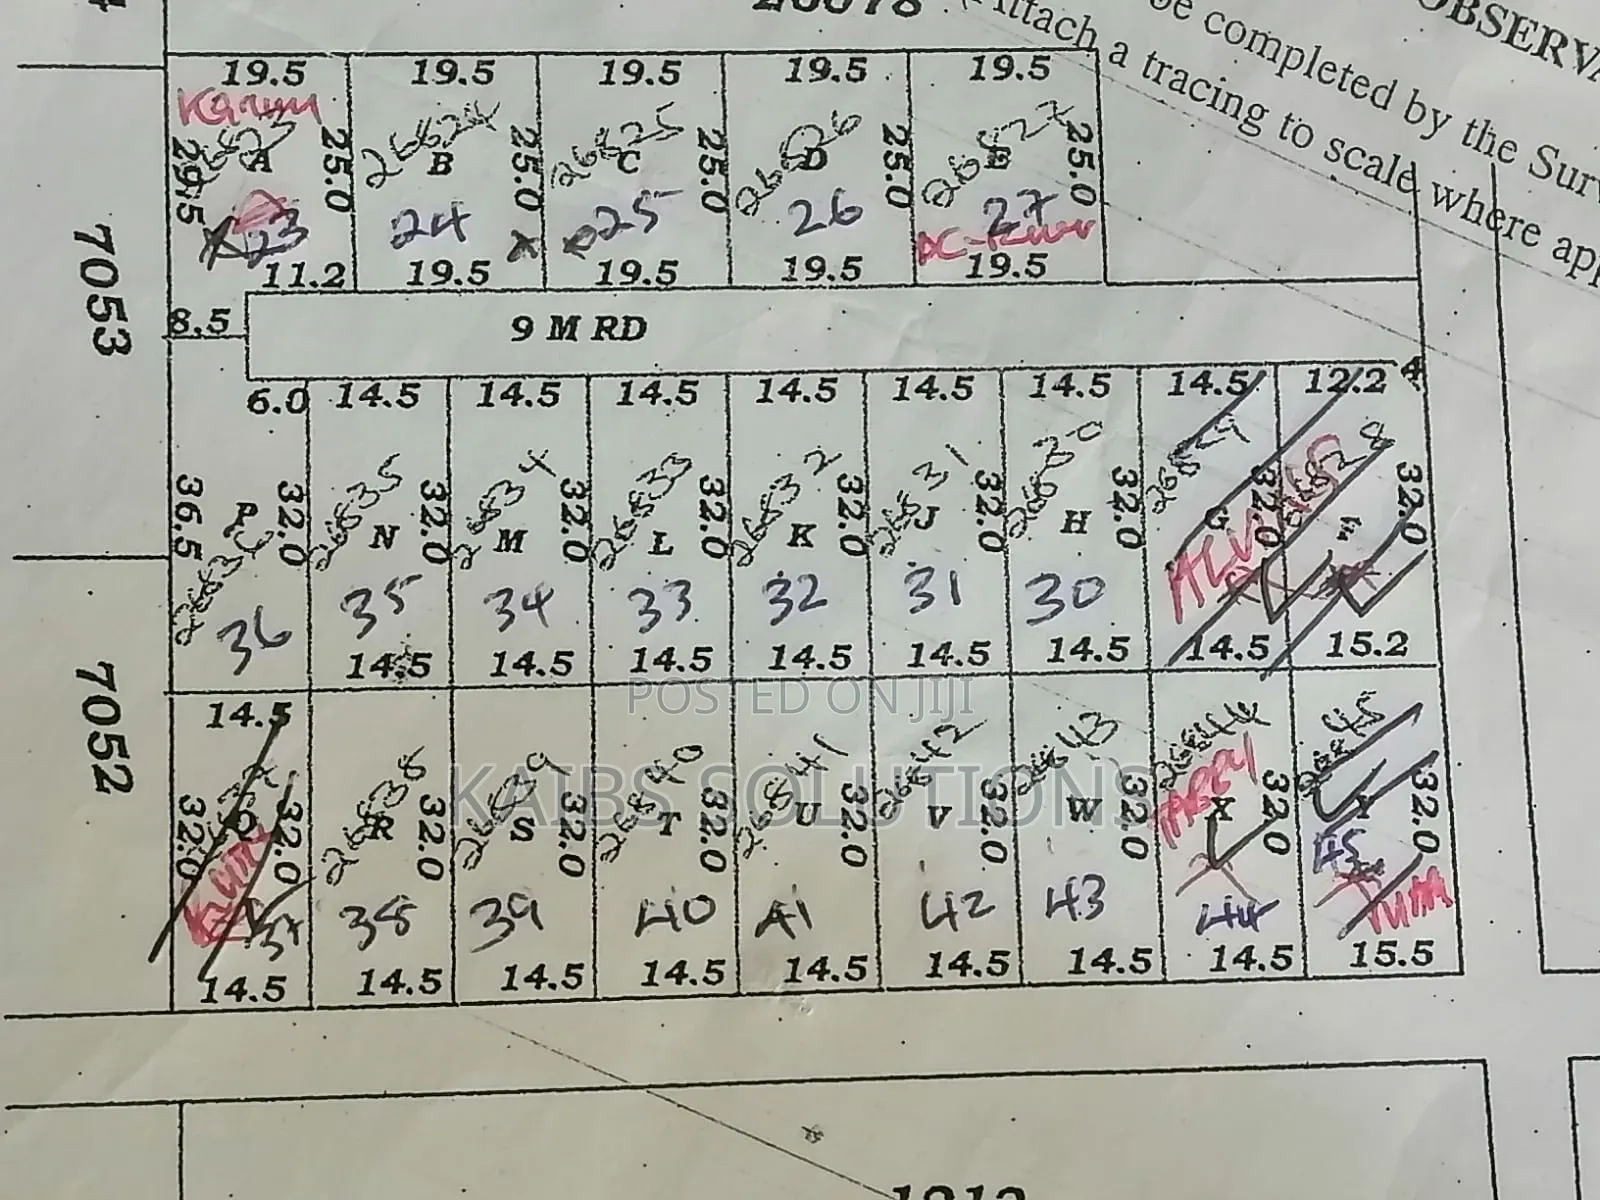 OBSERVA
be completed by the Surv
Attach a tracing to scale where app
19.5 19.5 19.5 19.5 19.5
Karim
26824 26825 26826 26827
A B C D E
29.5 25.0 25.0 25.0 25.0 25.0
23 24 25 26 27
11.2 19.5 19.5 19.5 19.5
7053
8.5
9 M RD
6.0 14.5 14.5 14.5 14.5 14.5 14.5 14.5 12.2
26835 26834 26833 26832 26831 26830
P N M L K J H G
36.5 32.0 32.0 32.0 32.0 32.0 32.0 32.0 32.0 32.0
36 35 34 33 32 31 30
14.5 14.5 14.5 14.5 14.5 14.5 14.5 15.2
7052
POSTED ON JIJI
14.5
26838 26839 26840 26841 26842 26843 26844 26845
KAIBS SOLUTIONS
R S T U V W X Y
32.0 32.0 32.0 32.0 32.0 32.0 32.0 32.0 32.0 32.0
37 38 39 40 41 42 43 44 45
14.5 14.5 14.5 14.5 14.5 14.5 14.5 14.5 15.5